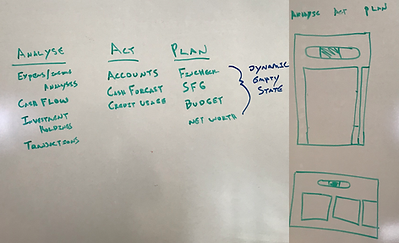 ANALYSE
EXPENS/INCOME
ANALYSES
CASH FLOW
INVESTMENT
HOLDINGS
TRANSACTIONS
ACT
ACCOUNTS
CASH FORCAST
CREDIT USAGE
PLAN
FINCHECK
SFG
BUDGET
NET WORTH
DYNAMIC
EMPTY
STATE
ANALYSE ACT PLAN